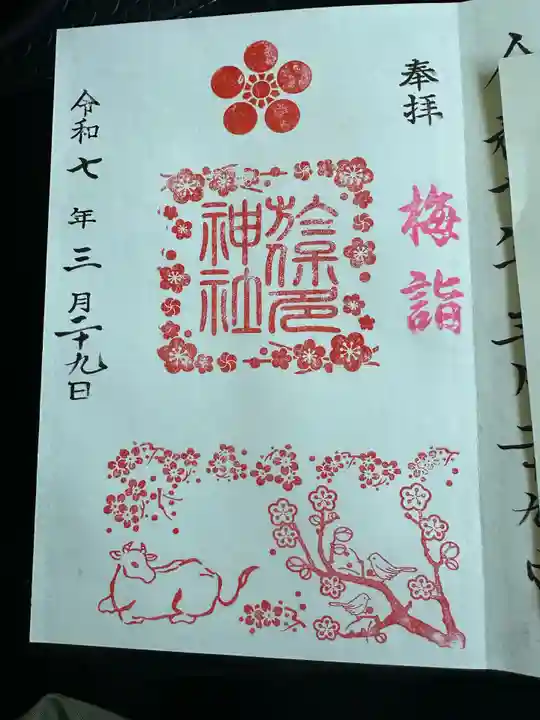 奉拝
梅詣
於保多
神社
令和七年三月二十九日